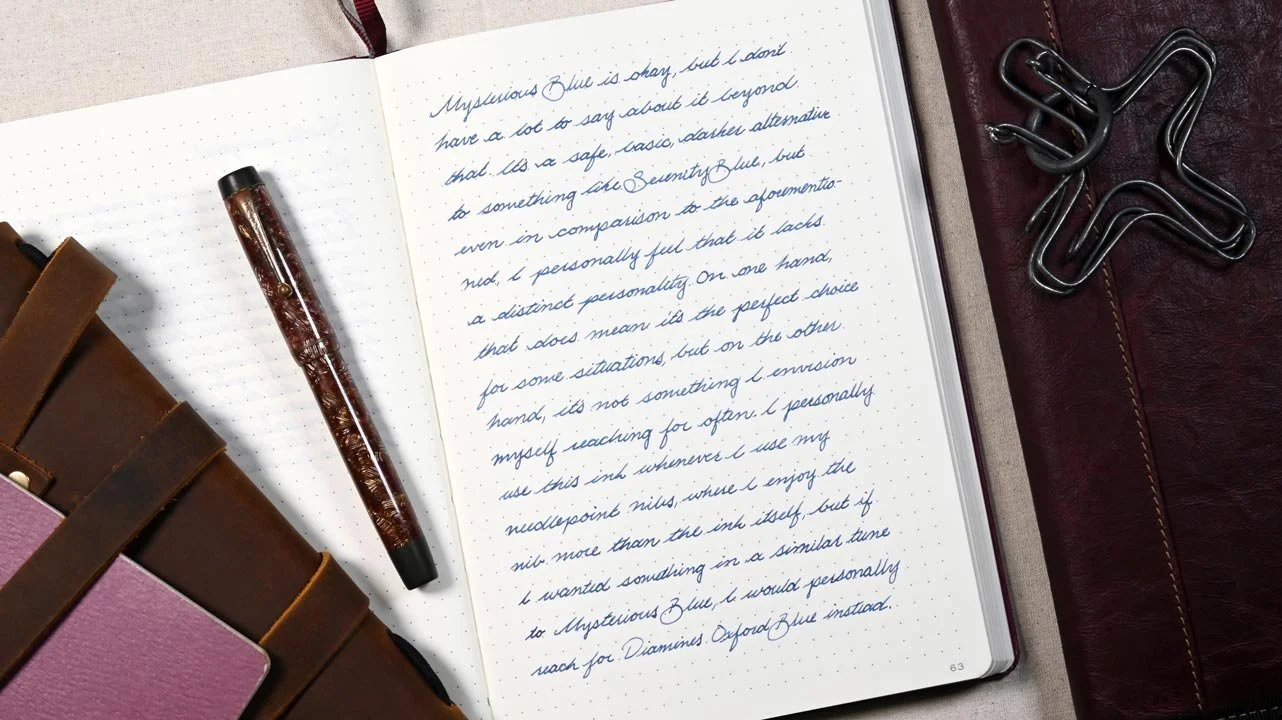 Mysterious Blue is okay, but I don't
have a lot to say about it beyond
that. It's a safe, basic, darker alternative
to something like Serenity Blue, but
even in comparison to the aforementio-
ned, I personally feel that it lacks
a distinct personality. On one hand,
that does mean it's the perfect choice
for some situations, but on the other
hand, it's not something I envision
myself reaching for often. I personally
use this ink whenever I use my
needlepoint nibs, where I enjoy the
nib more than the ink itself, but if
I wanted something in a similar tune
to Mysterious Blue, I would personally
reach for Diamines Oxford Blue instead.
63